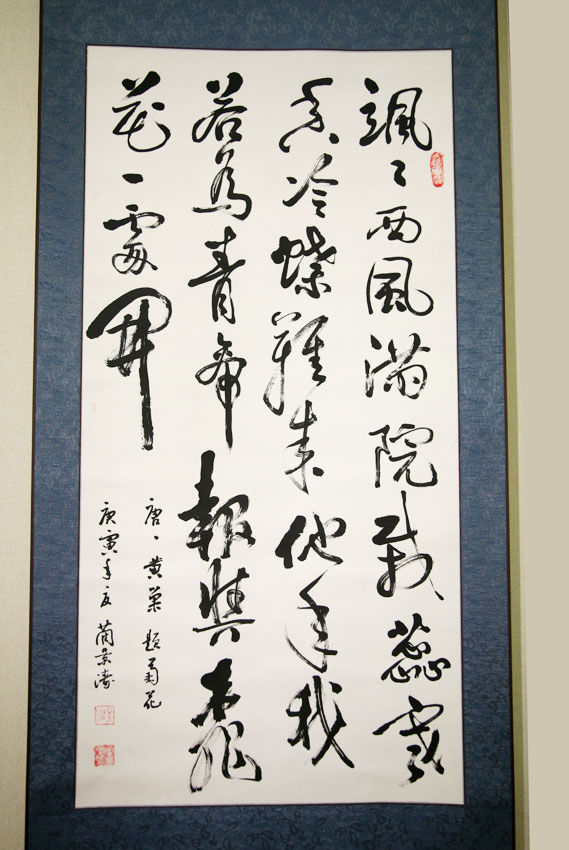 颯〻西風满院栽蕊寒
香冷蝶難来他年我
若為青帝報與桃
花一處開
唐、黄巢 题菊花
庚寅年夏 景濤